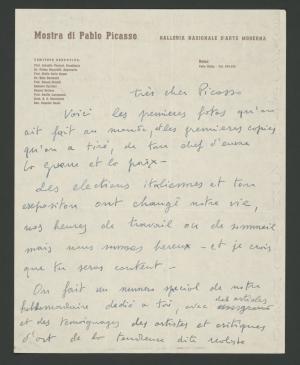 Mostra di Pablo Picasso
GALLERIA NAZIONALE D'ARTE MODERNA
COMITATO ESECUTIVO
Roma
très cher Picasso
Voici les premieres fotos qu'on
ait fait au monde, et les premieres copies
qu'on a tiré, de ton chef d'euvre
la guerre et la paix -
Les elections italiennes et ton
exposition ont changé notre vie,
nos heures de travail ou de sommeil
mais nous sumes hereux - et je crois
que tu seras content -
On fait un numero special de notre
hebdomadaire dedié a toi, avec des articles
et des temoignages des artistes et critiques
d'art de la tendence dite realiste